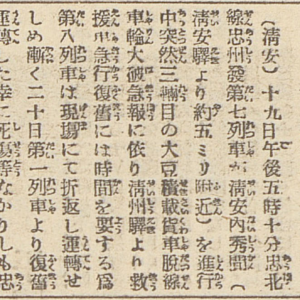 〔淸安〕十九日午後五時十分忠北
線忠州發第七列車が淸安內秀間（
淸安驛より約五ミリ附近）を進行
中突然三輛目の大豆積載貨車脫線
車輪大破急報に依り淸州驛より救
援中急行復舊には時間を要する爲
第八列車は現場にて折返し運轉せ
しめ漸く二十日第一列車より復舊
運轉した幸に死傷等なかりしも忠